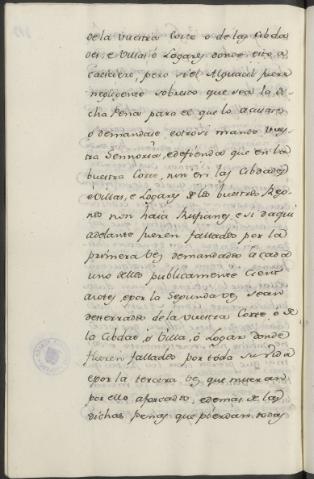 de la vuestra Corte o de las Cibda
des, e Villas, o Logares donde esto a
caeciere, pero si el Alguacil fuere
negligente sobre esto que sea la di
cha Pena para el que lo acusare
o demandare, e otrosi mando vues
tra Sennoria, e defienda que en la
vuestra Corte, nin en las Cibdades
e Villas, e Logares de los vuestros Reg
nos non haia Rufianes, e si daqui
adelante fueren fallados por la
primera vez, demandados a cada
uno dellos publicamente Cient
azotes, e por la segunda vez, sean
desterrados de la vuestra Corte, o de
la Cibdad, o Villa, o Logar donde
fueren fallados por toda su vida
e por la tercera vez que mueran
por ello aforcados, e demas de las
dichas penas que pierdan todas